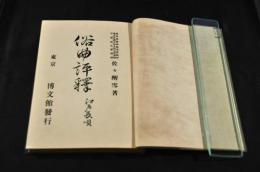 佐々醒雪著
俗曲評釋
江戸長唄
東京
博文館發行